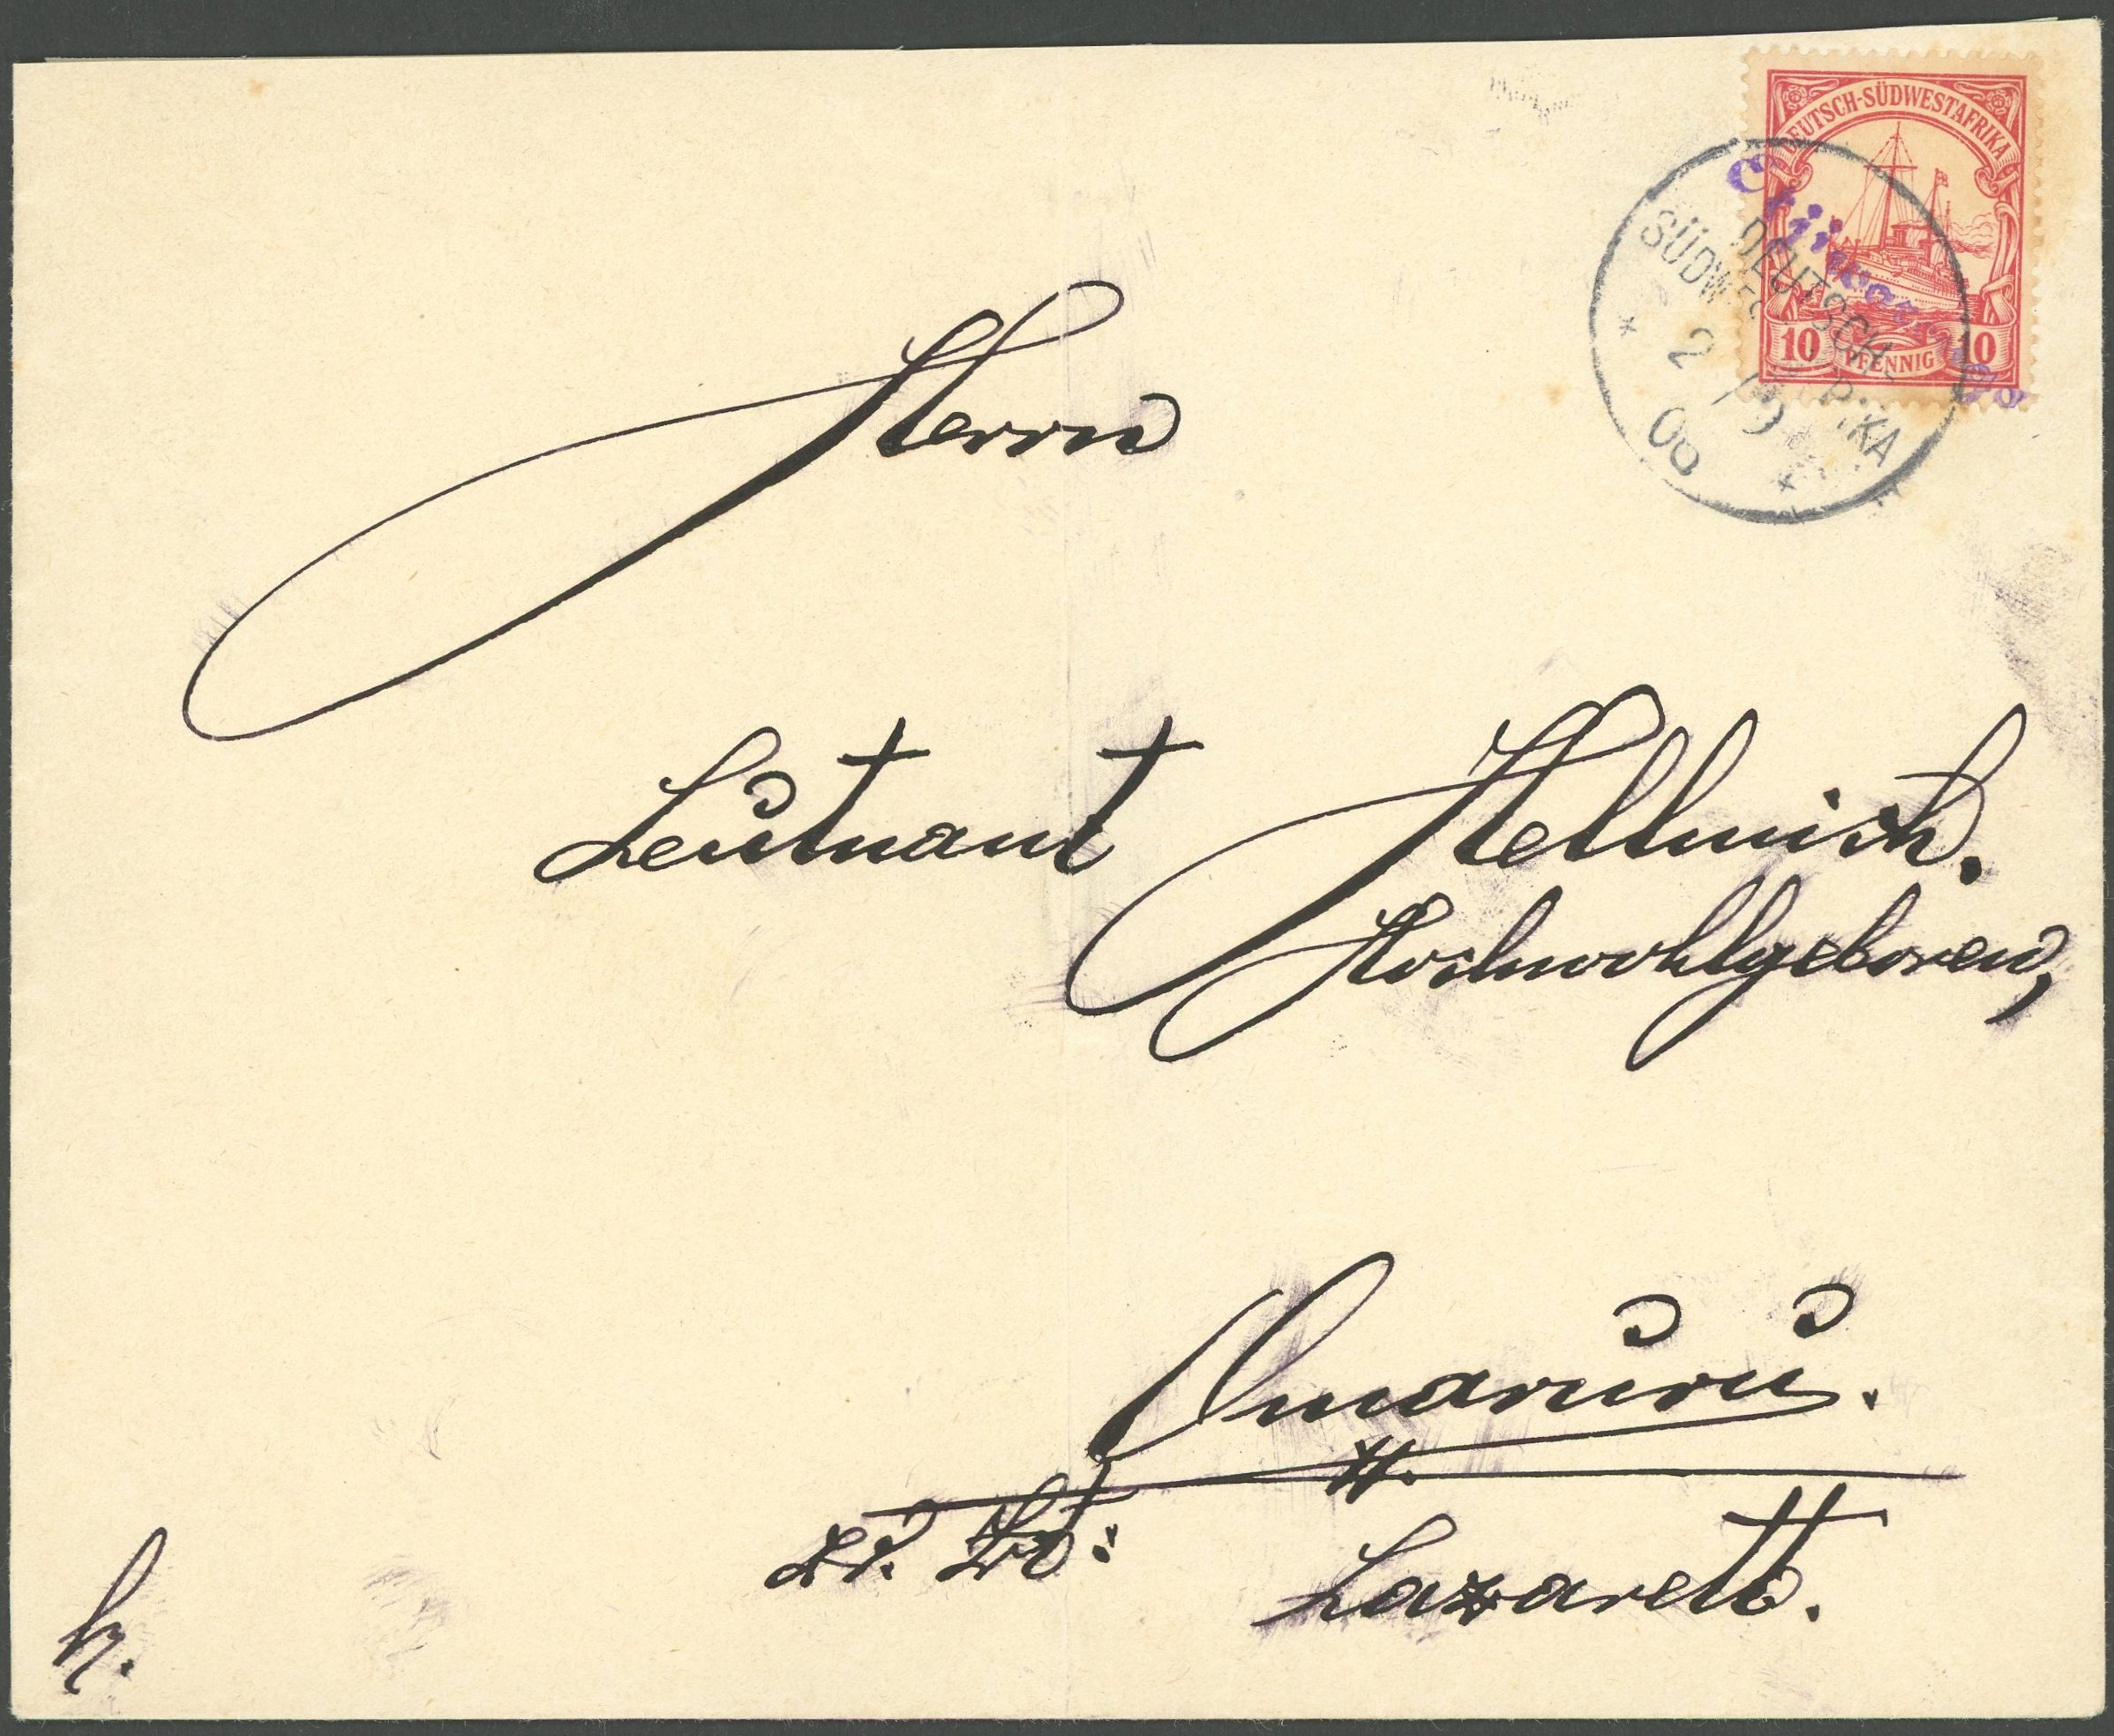 DEUTSCH-SÜDWESTAFRIKA
10 PFENNIG 10
DEUTSCH-
SÜDWEST AFRIKA
2/9
06
Herrn
Leutnant Hellmich.
Hochwohlgeboren,
Omaruru.
Lazarett.
h.